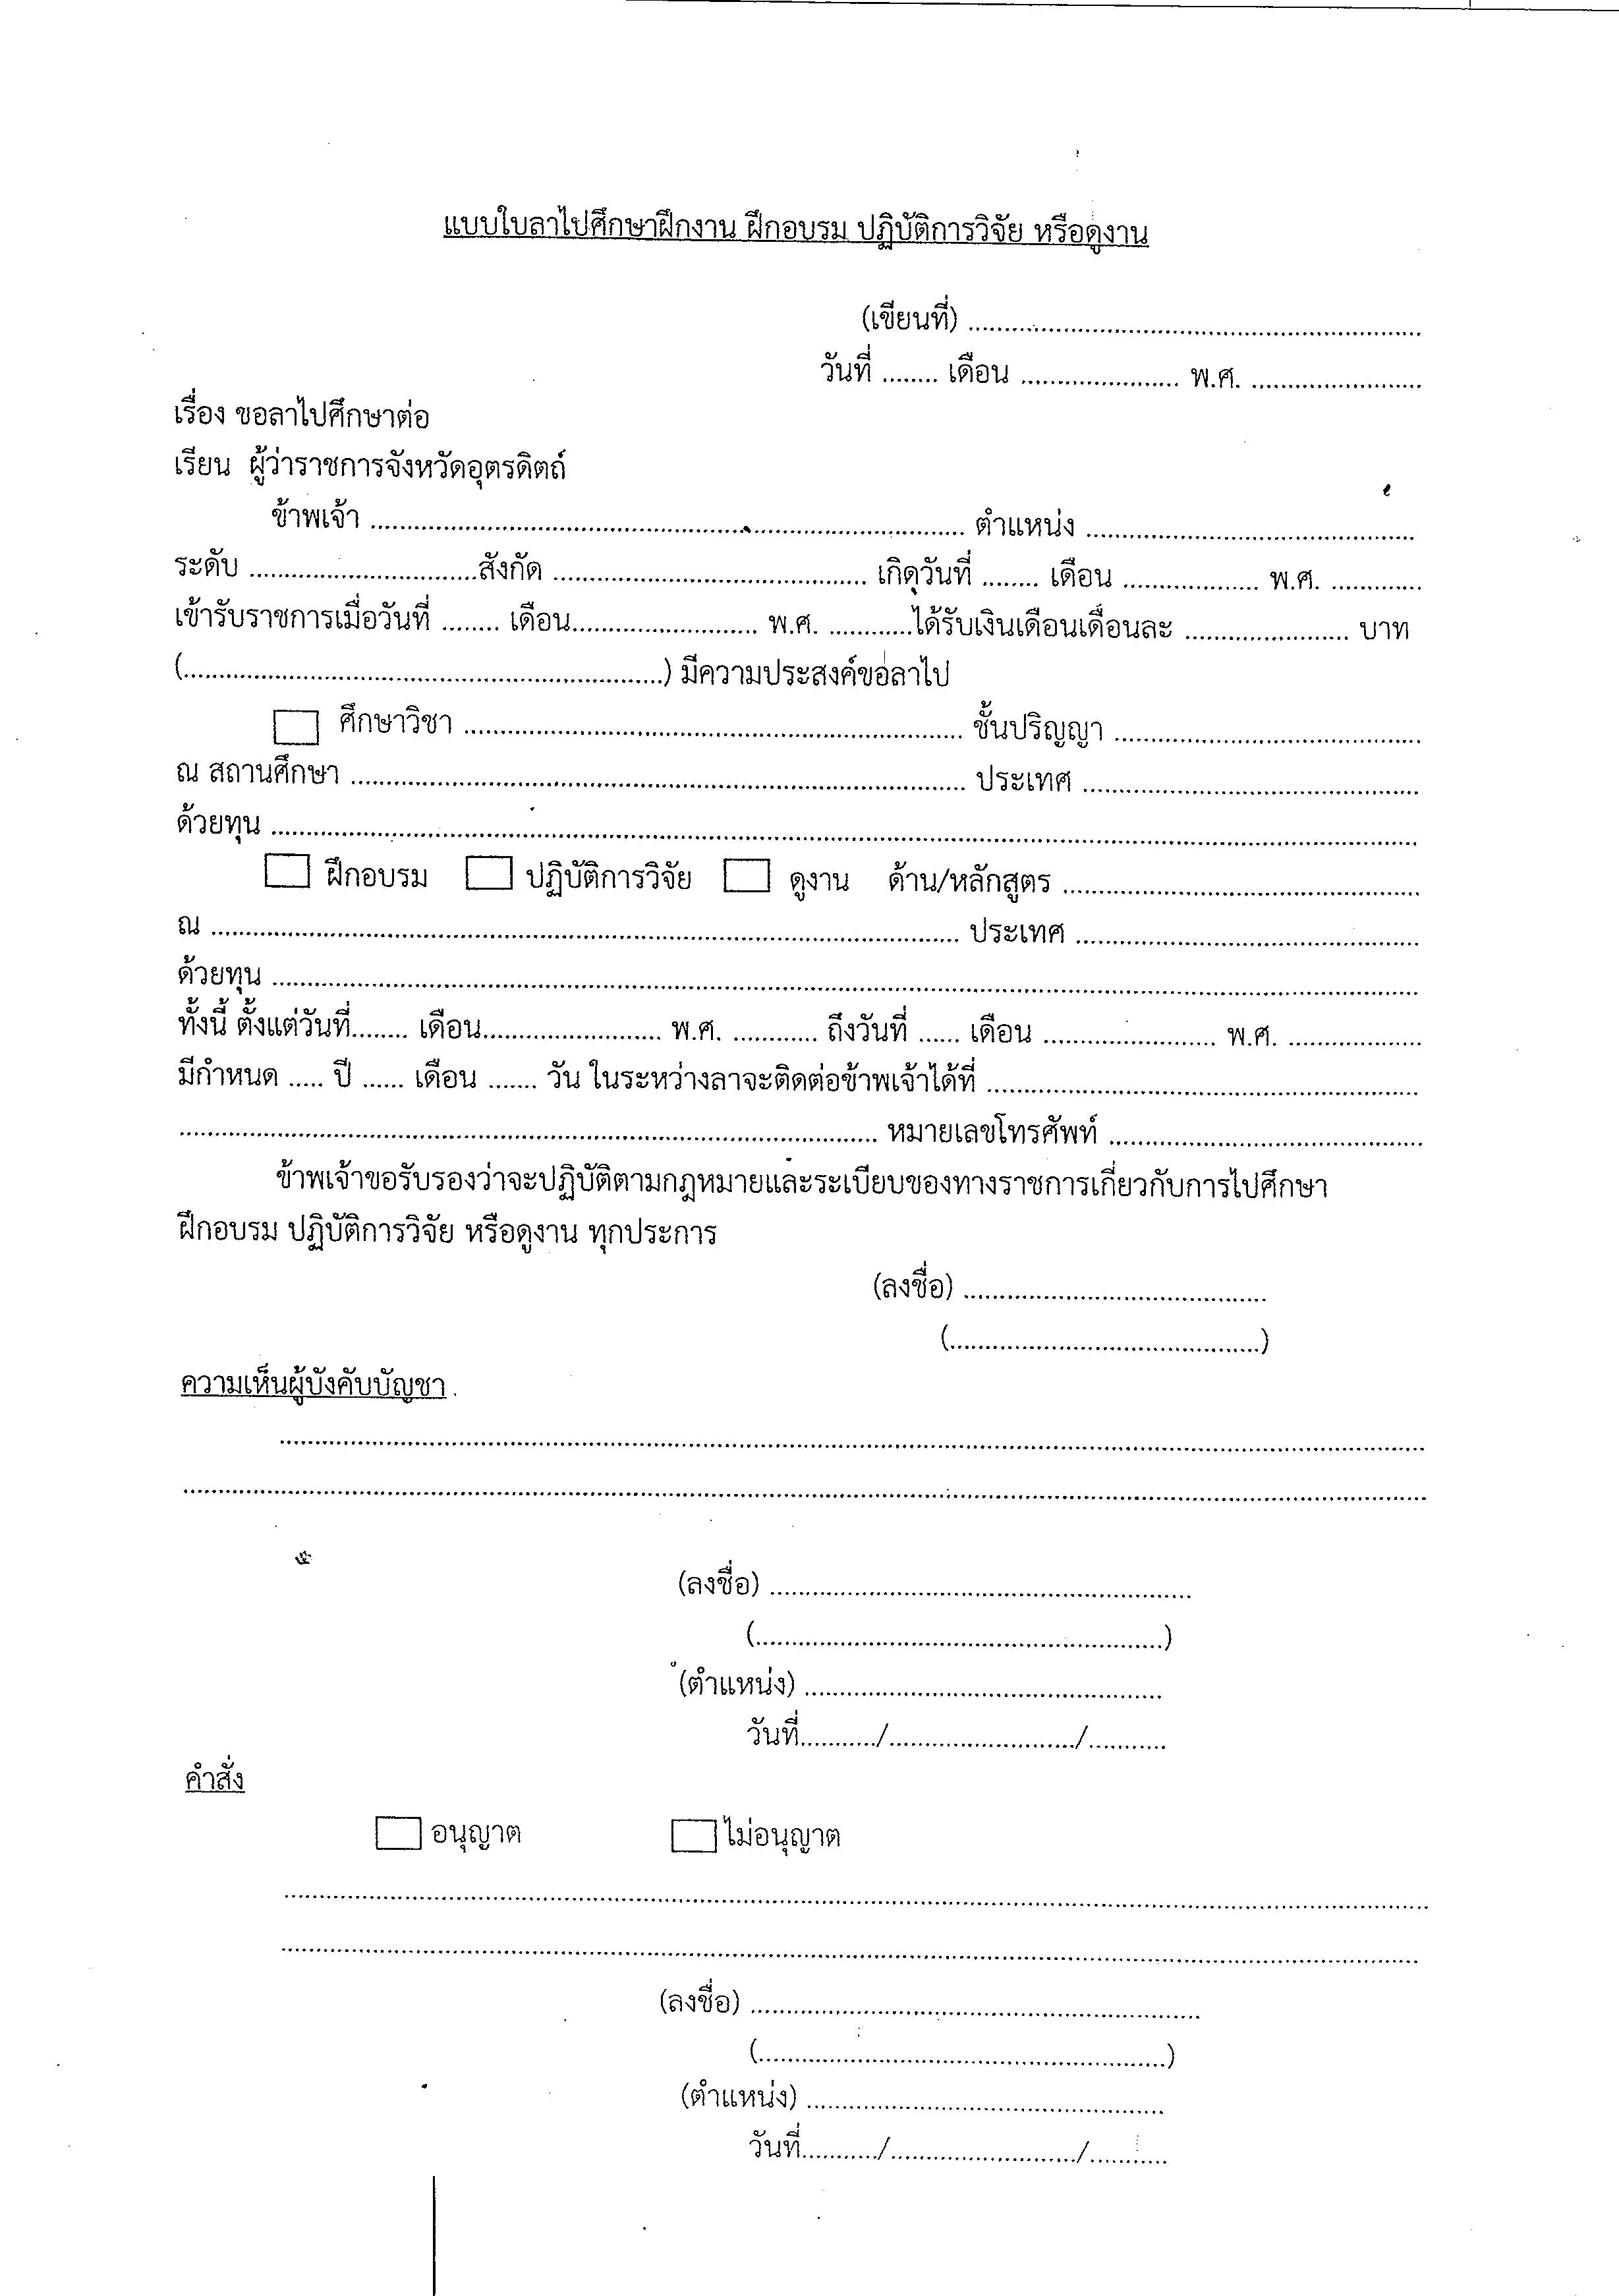 แบบใบลาไปศึกษาฝึกงาน ฝึกอบรม ปฏิบัติการวิจัย หรือดูงาน
(เขียนที่) ........................................................
วันที่ ........ เดือน ...................... พ.ศ. ........................
เรื่อง ขอลาไปศึกษาต่อ
เรียน ผู้ว่าราชการจังหวัดอุตรดิตถ์
ข้าพเจ้า ........................................................ ตำแหน่ง ........................................
ระดับ ................................สังกัด ............................................ เกิดวันที่ ........ เดือน ................... พ.ศ. .............
เข้ารับราชการเมื่อวันที่ ........ เดือน.......................... พ.ศ. ............ได้รับเงินเดือนเดือนละ ....................... บาท
(....................................................................) มีความประสงค์ขอลาไป
☐ ศึกษาวิชา ........................................................ ชั้นปริญญา ........................................
ณ สถานศึกษา ........................................................ ประเทศ ........................................
ด้วยทุน ................................................................................
☐ ฝึกอบรม ☐ ปฏิบัติการวิจัย ☐ ดูงาน ด้าน/หลักสูตร ........................................
ณ ........................................................ ประเทศ ........................................
ด้วยทุน ................................................................................
ทั้งนี้ ตั้งแต่วันที่........ เดือน......................... พ.ศ. ............ ถึงวันที่ ...... เดือน ........................ พ.ศ. ...................
มีกำหนด ..... ปี ...... เดือน ....... วัน ในระหว่างลาจะติดต่อข้าพเจ้าได้ที่ ........................................
........................................................ หมายเลขโทรศัพท์ ........................................
ข้าพเจ้าขอรับรองว่าจะปฏิบัติตามกฎหมายและระเบียบของทางราชการเกี่ยวกับการไปศึกษา
ฝึกอบรม ปฏิบัติการวิจัย หรือดูงาน ทุกประการ
(ลงชื่อ) ...........................................
(............................................)
ความเห็นผู้บังคับบัญชา
................................................................................
................................................................................
(ลงชื่อ) ........................................................
(........................................................)
(ตำแหน่ง) ..................................................
วันที่........../........................../...........
คำสั่ง
☐ อนุญาต ☐ ไม่อนุญาต
................................................................................
................................................................................
(ลงชื่อ) ........................................................
(........................................................)
(ตำแหน่ง) ..................................................
วันที่........../........................../...........